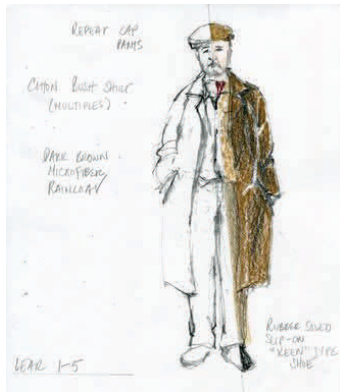 REPEAT CAP
PANTS
COTTON BUSH SHIRT
(MULTIPLES)
DARK BROWN
MICROFIBER
RAINCOAT
RUBBER SOLED
SLIP-ON
"KEEN" TYPE
SHOE
LEAR 1-5